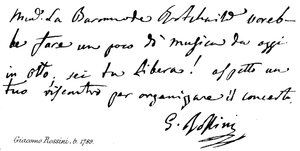 Mad. La Baronne de Rotschild voreb-
be fare un poco di musica da oggi
in otto, sei tu Libera? aspetto un
tuo riscontro per organizzare il concerto
G. Rossini
Giacomo Rossini, b. 1789.